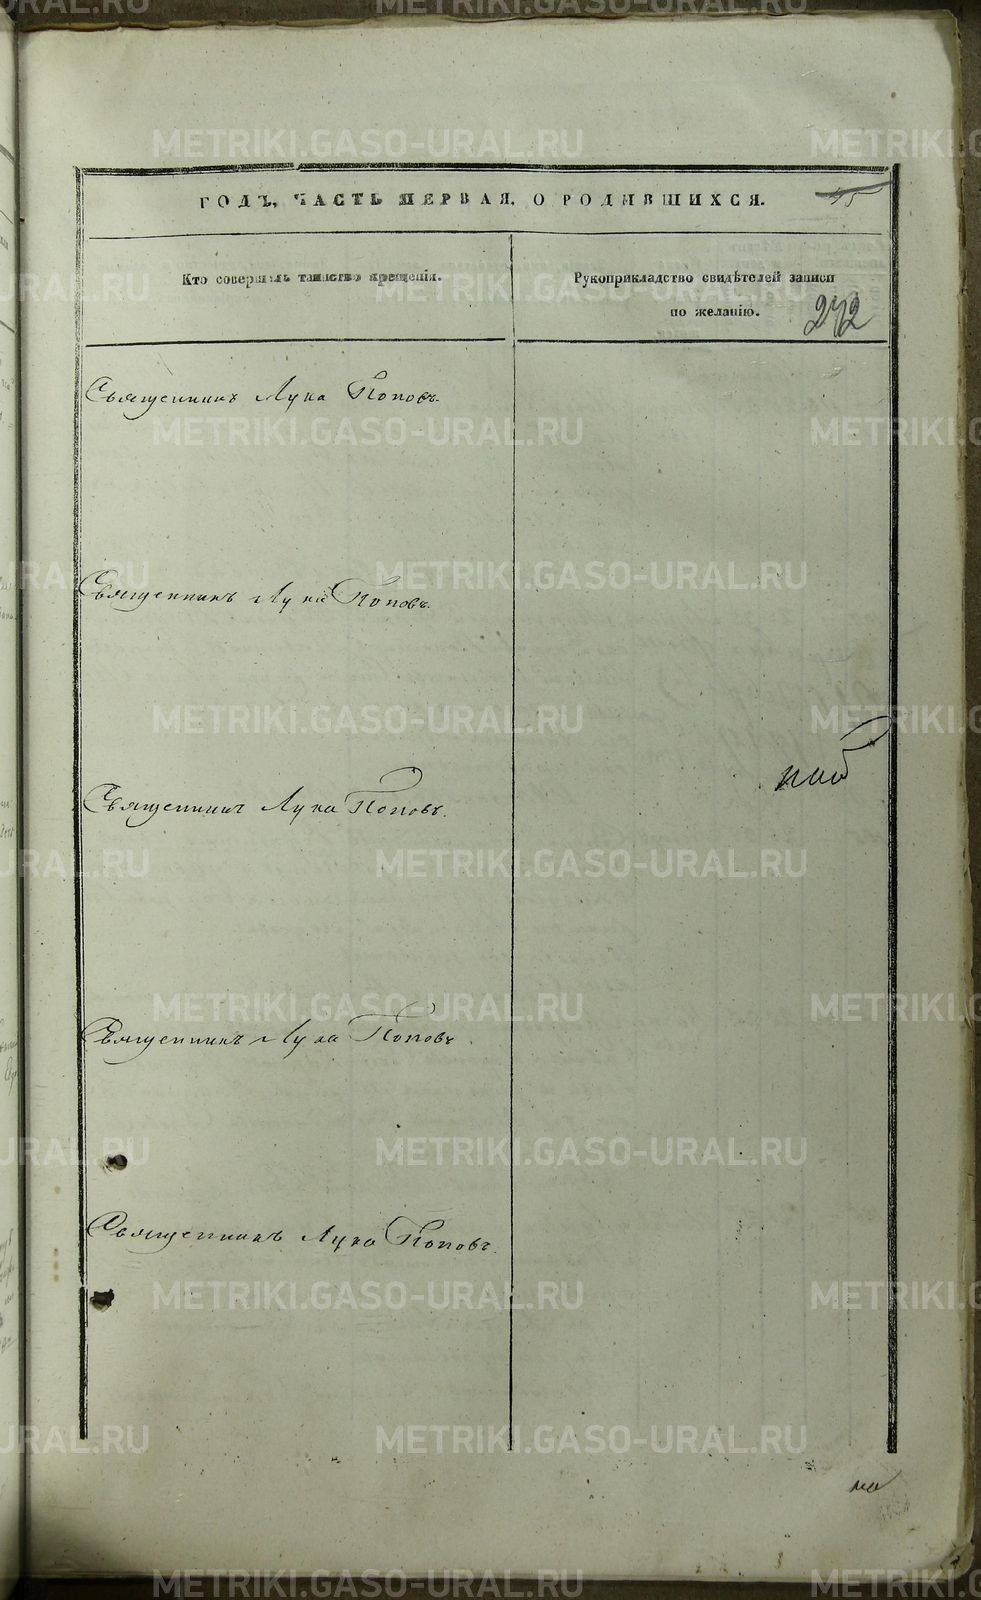 ГОДЪ, ЧАСТЬ ПЕРВАЯ, О РОДИВШИХСЯ. 45
Кто совершалъ таинство крещенія.
Рукоприкладство свидѣтелей записи
по желанію. 242
Священникъ Лука Поповъ.
Священникъ Лука Поповъ.
Священникъ Лука Поповъ.
Священникъ Лука Поповъ.
Священникъ Лука Поповъ.
METRIKI.GASO-URAL.RU